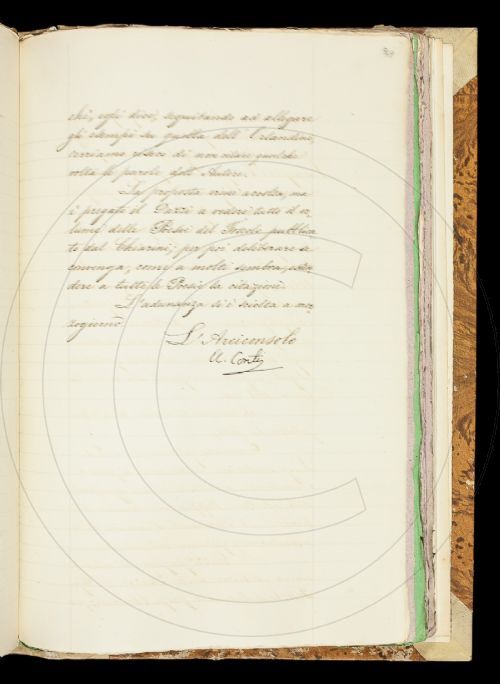 chè, egli dice, seguitando ad allegare
gli esempi su quella dell' Orlandini,
verriamo a di non citare qualche
volta le parole dell' Autore.
La proposta viene accolta, ma
è pregato il a vedere tutto il vo=
lume delle Poesie del Foscolo pubblica=
te dal Chiarini; per poi deliberare se
convenga, come a molti sembra, esten=
dere a tutte le Poesie la citazione.
L'adunanza si è sciolta a mez=
zogiorno.
L'Arciconsolo
A. Conti